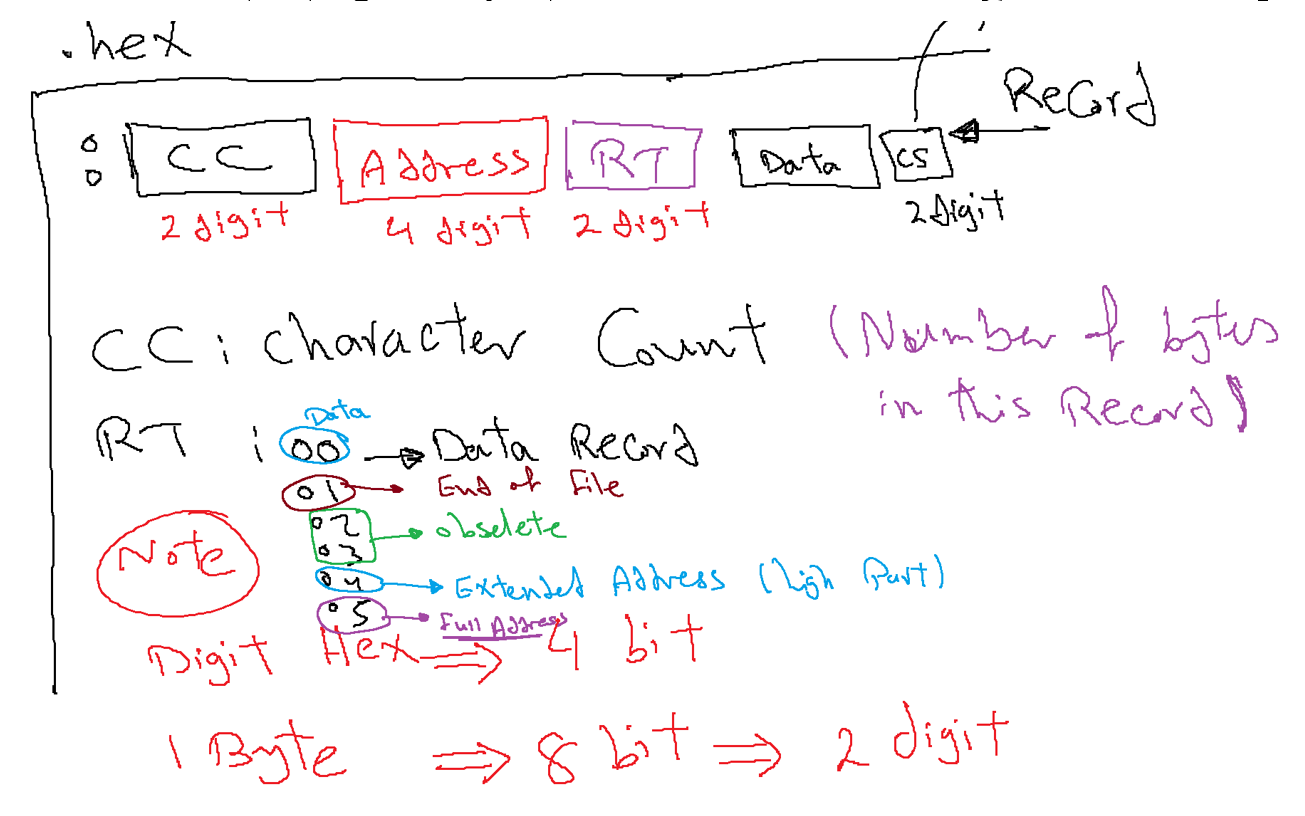 .hex
Record
: CC Address RT Data CS
2 digit 4 digit 2 digit 2 digit
CC : character Count (Number of bytes
in this Record)
Data
RT : 00 → Data Record
01 → End of File
02
03 → obselete
04 → Extended Address (high Part)
05 → Full Address
Note
Digit Hex ⇒ 4 bit
1 Byte ⇒ 8 bit ⇒ 2 digit